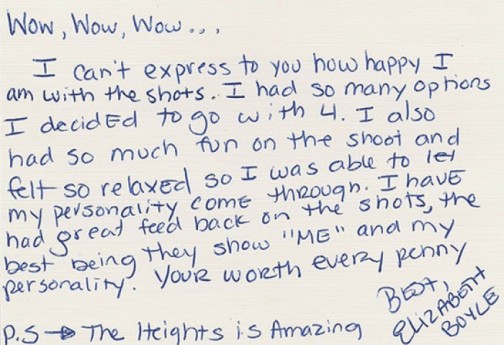 Wow, Wow, Wow...
I can't express to you how happy I
am with the shots. I had so many options
I decided to go with 4. I also
had so much fun on the shoot and
felt so relaxed so I was able to let
my personality come through. I have
had great feed back on the shots, the
best being they show "ME" and my
personality. Your worth every penny
Best,
Elizabeth
Boyle
P.S → The Heights is Amazing